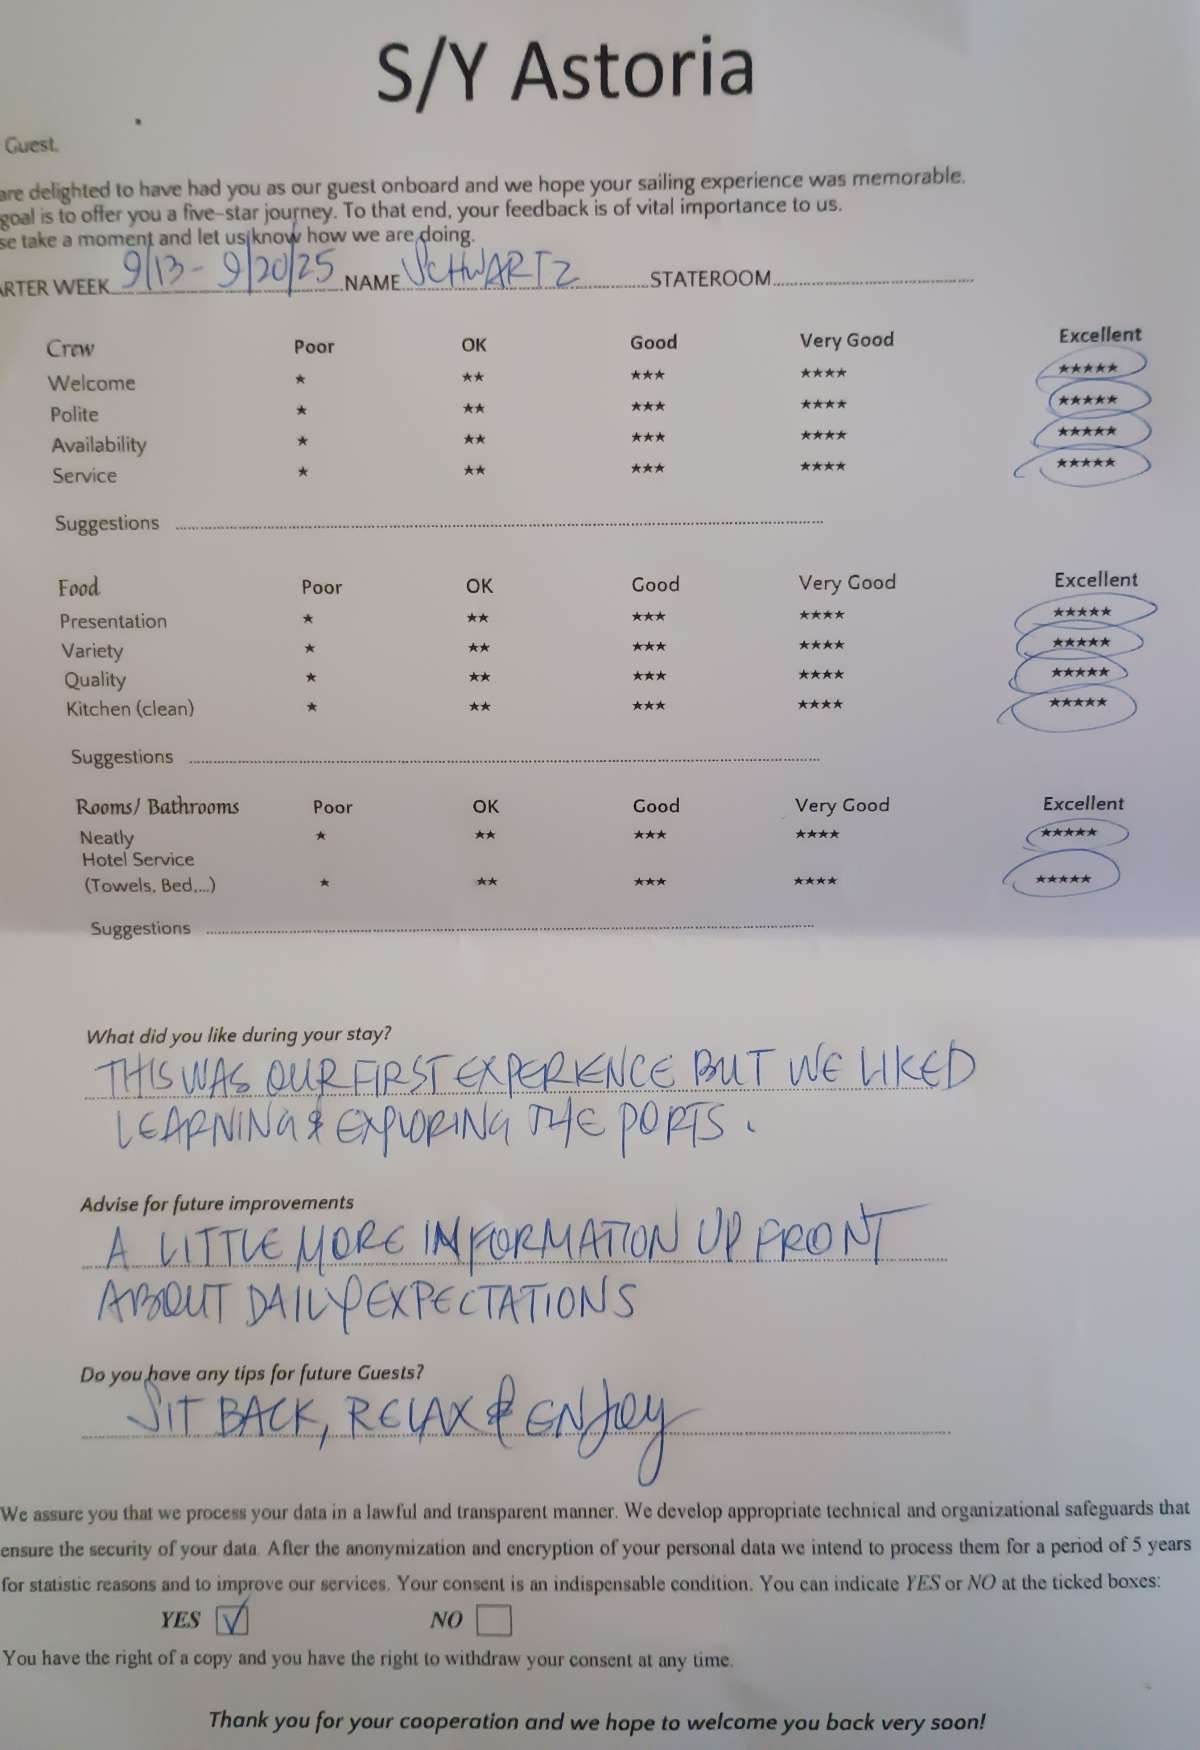 S/Y Astoria
Guest,
are delighted to have had you as our guest onboard and we hope your sailing experience was memorable.
goal is to offer you a five-star journey. To that end, your feedback is of vital importance to us.
se take a moment and let us know how we are doing.
ARTER WEEK 9/13 - 9/20/25 NAME SCHWARTZ STATEROOM
Crew Poor OK Good Very Good Excellent
Welcome ★ ★★ ★★★ ★★★★ ★★★★★
Polite ★ ★★ ★★★ ★★★★ ★★★★★
Availability ★ ★★ ★★★ ★★★★ ★★★★★
Service ★ ★★ ★★★ ★★★★ ★★★★★
Suggestions
Food Poor OK Good Very Good Excellent
Presentation ★ ★★ ★★★ ★★★★ ★★★★★
Variety ★ ★★ ★★★ ★★★★ ★★★★★
Quality ★ ★★ ★★★ ★★★★ ★★★★★
Kitchen (clean) ★ ★★ ★★★ ★★★★ ★★★★★
Suggestions
Rooms/ Bathrooms Poor OK Good Very Good Excellent
Neatly ★ ★★ ★★★ ★★★★ ★★★★★
Hotel Service
(Towels, Bed,...) ★ ★★ ★★★ ★★★★ ★★★★★
Suggestions
What did you like during your stay?
THIS WAS OUR FIRST EXPERIENCE BUT WE LIKED
LEARNING & EXPLORING THE PORTS.
Advise for future improvements
A LITTLE MORE INFORMATION UP FRONT
ABOUT DAILY EXPECTATIONS
Do you have any tips for future Guests?
SIT BACK, RELAX & ENJOY
We assure you that we process your data in a lawful and transparent manner. We develop appropriate technical and organizational safeguards that
ensure the security of your data. After the anonymization and encryption of your personal data we intend to process them for a period of 5 years
for statistic reasons and to improve our services. Your consent is an indispensable condition. You can indicate YES or NO at the ticked boxes:
YES ☑ NO ☐
You have the right of a copy and you have the right to withdraw your consent at any time.
Thank you for your cooperation and we hope to welcome you back very soon!